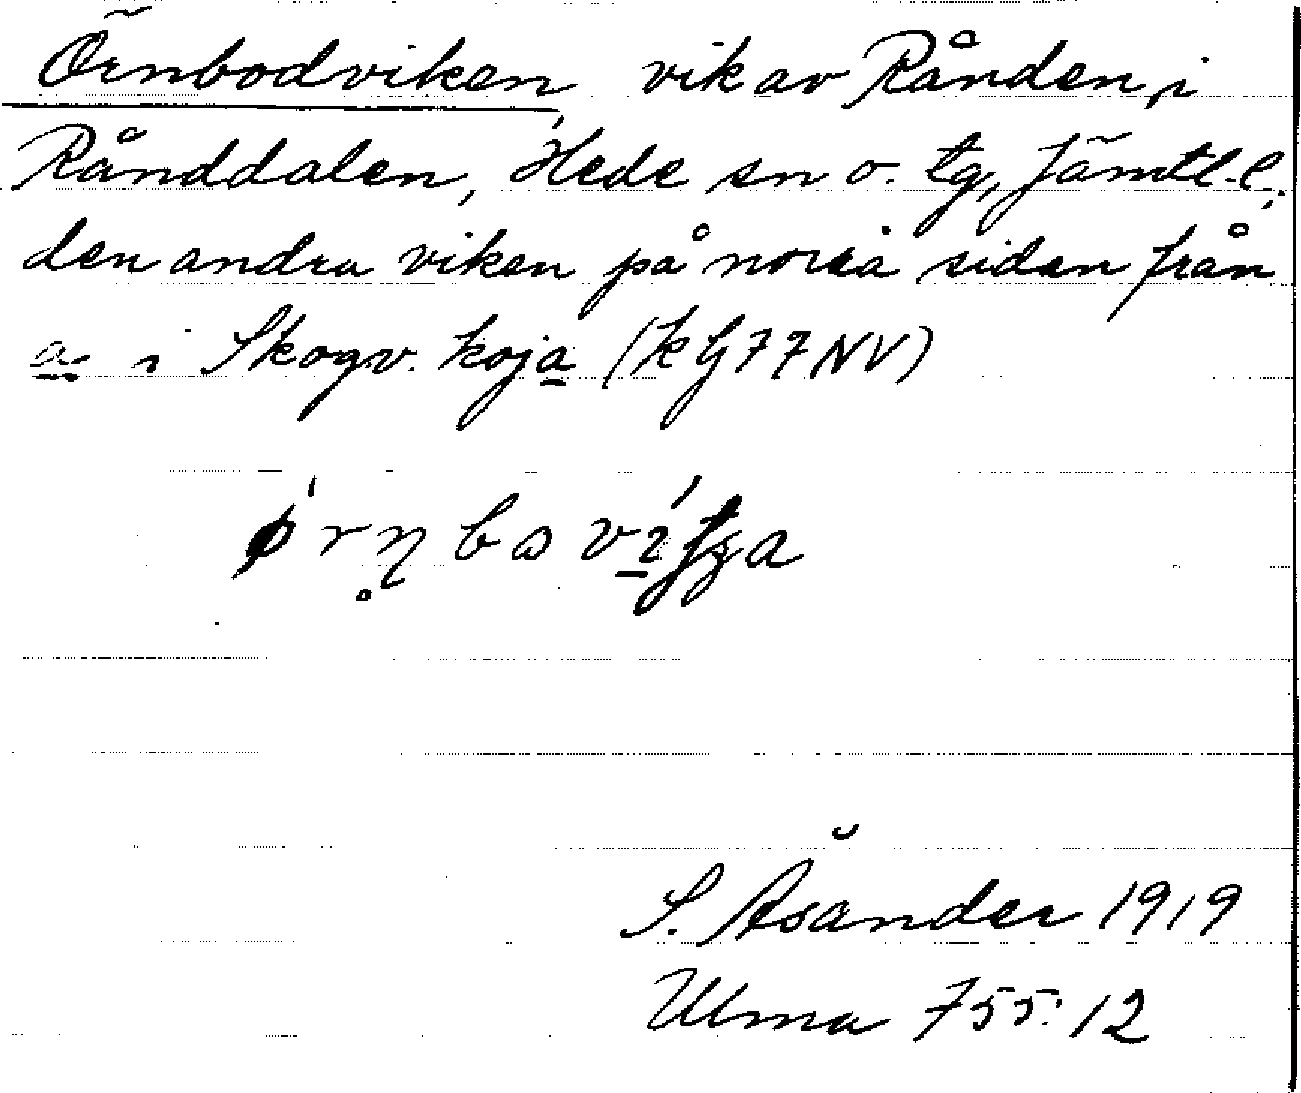 Örnbodviken, vik av Rånden, i
Rånddalen, Hede sn o. tg, Jämtl. l.
den andra viken på norra sidan från
a i Skogv. koja (kG77NV)
S. Åsander 1919
Ulma 755:12